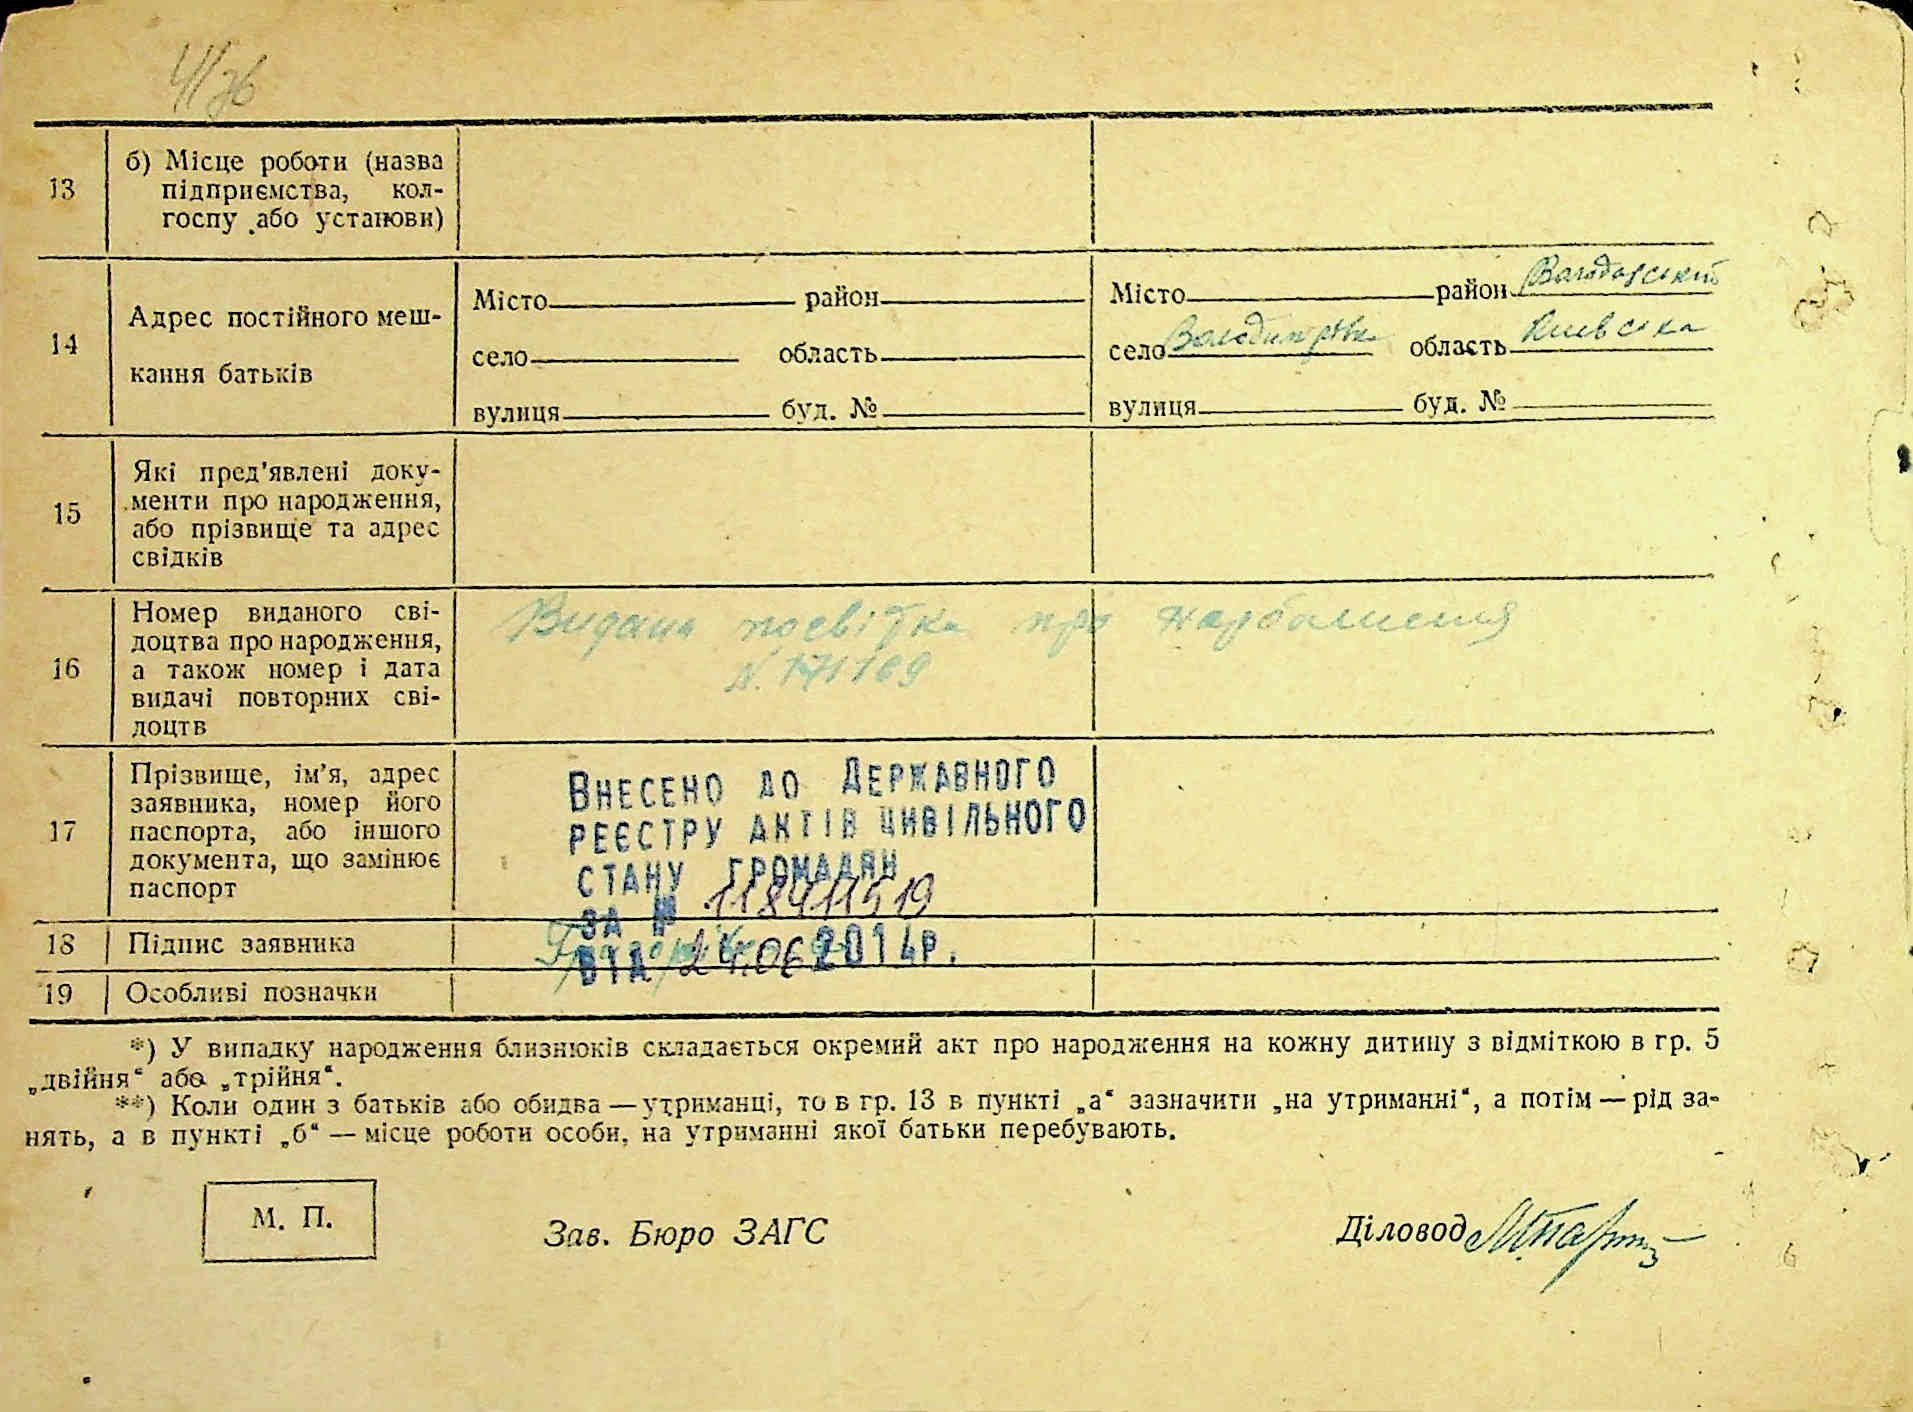 13
б) Місце роботи (назва
підприємства, кол-
госпу або установи)
14
Адрес постійного меш-
кання батьків
Місто район
село область
вулиця буд. №
Місто район Володарський
село Володимирівка область Київська
вулиця буд. №
15
Які пред'явлені доку-
менти про народження,
або прізвище та адрес
свідків
16
Номер виданого сві-
доцтва про народження,
а також номер і дата
видачі повторних сві-
доцтв
Видана посвідка про
N. 171169
17
Прізвище, ім'я, адрес
заявника, номер його
паспорта, або іншого
документа, що замінює
паспорт
Внесено до Державного
реєстру актів цивільного
стану громадян
за № 11841519
від 24.06 2014р.
18
Підпис заявника
19
Особливі позначки
*) У випадку народження близнюків складається окремий акт про народження на кожну дитину з відміткою в гр. 5
„двійня“ або „трійня“.
**) Коли один з батьків або обидва — утриманці, то в гр. 13 в пункті „а“ зазначити „на утриманні“, а потім — рід за-
нять, а в пункті „б“ — місце роботи особи, на утриманні якої батьки перебувають.
М. П.
Зав. Бюро ЗАГС
Діловод